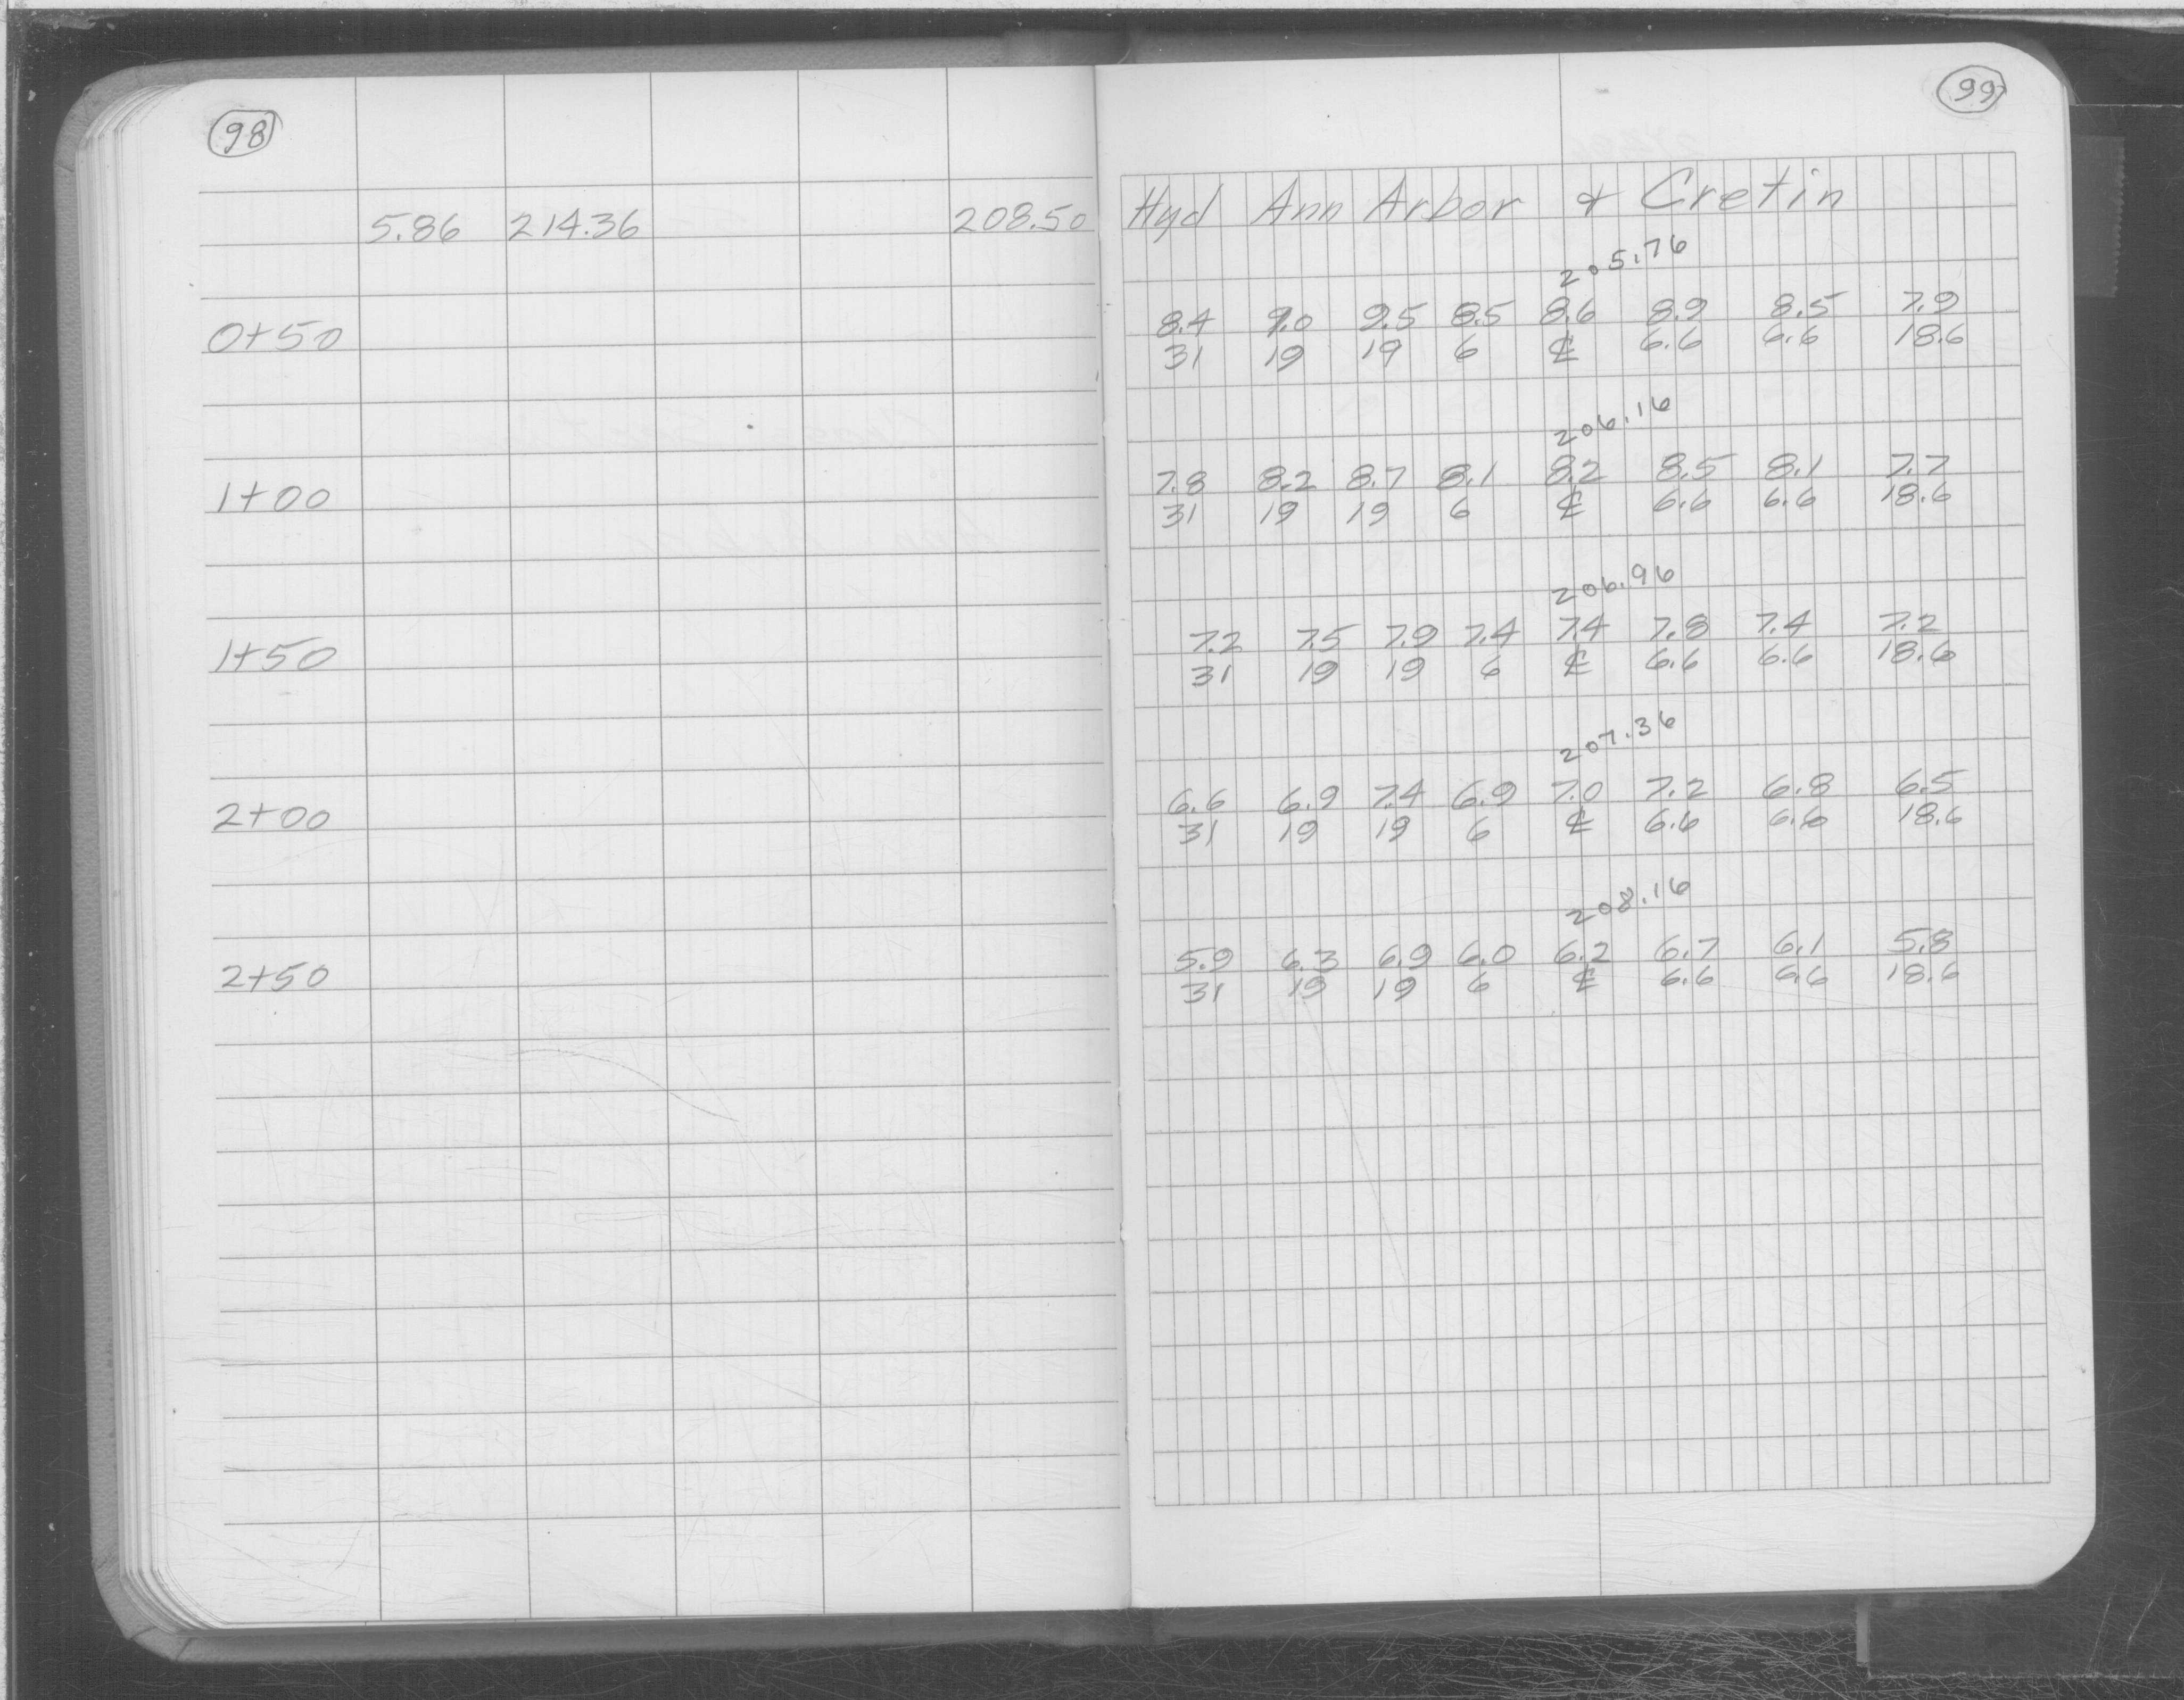 98
99
5.86 214.36 208.50 Hyd Ann Arbor & Cretin
205.76
0+50 8.4 9.0 9.5 8.5 8.6 8.9 8.5 7.9
31 19 19 6 ℄ 6.6 6.6 18.6
206.16
1+00 7.8 8.2 8.7 8.1 8.2 8.5 8.1 7.7
31 19 19 6 ℄ 6.6 6.6 18.6
206.96
1+50 7.2 7.5 7.9 7.4 7.4 7.8 7.4 7.2
31 19 19 6 ℄ 6.6 6.6 18.6
207.36
2+00 6.6 6.9 7.4 6.9 7.0 7.2 6.8 6.5
31 19 19 6 ℄ 6.6 6.6 18.6
208.16
2+50 5.9 6.3 6.9 6.0 6.2 6.7 6.1 5.8
31 19 19 6 ℄ 6.6 6.6 18.6